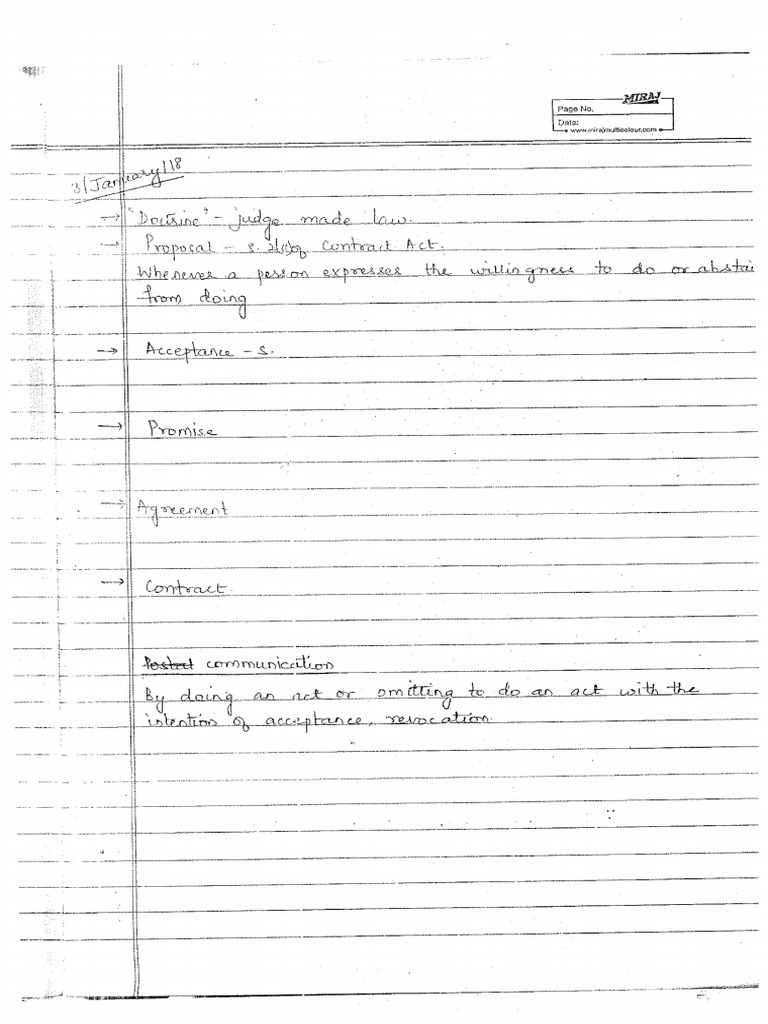 MIRAJ
Page No.
Date:
www.mirajmulticolour.com
3/January/18
→ "Doctrine" - judge made law.
→ Proposal - s. 2(a) of Contract Act.
Whenever a person expresses the willingness to do or abstai
from doing
→ Acceptance - s.
→ Promise
→ Agreement
→ Contract.
Postal communication
By doing an act or omitting to do an act with the
intention of acceptance, revocation.